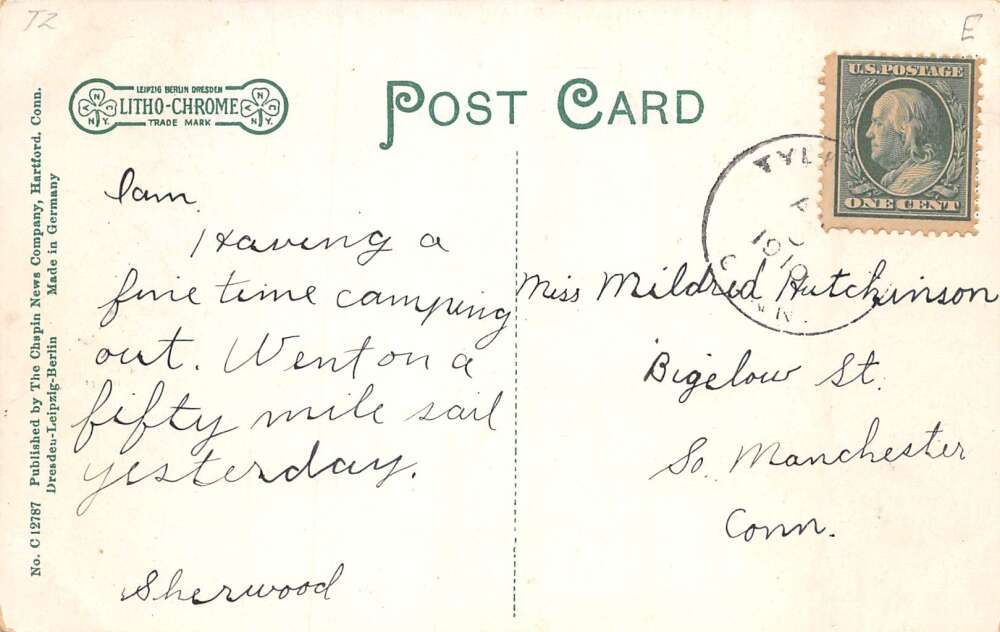 TZ
E
LEIPZIG BERLIN DRESDEN
LITHO-CHROME
TRADE MARK
N
N.Y.
N
N.Y.
POST CARD
U.S. POSTAGE
ONE CENT
1910
I am
Having a
fine time camping
out. Went on a
fifty mile sail
yesterday.
Sherwood
Miss Mildred Hutchinson
Bigelow St.
So. Manchester
Conn.
No. C 12787 Published by The Chapin News Company, Hartford, Conn.
Dresden-Leipzig-Berlin Made in Germany